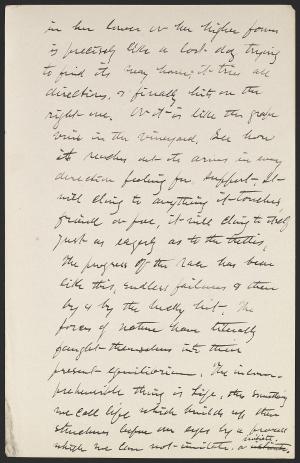 in her lower or her higher forms
is precisely like a lost dog trying
to find its way home; it tries all
directions, & finally hits on the
right one. Or it is like the grape
vine in the vineyard. See how
it reaches out its arms in every
direction feeling for support. It
will cling to anything it touches,
friend or foe, it will cling to itself
just as eagerly as to the trellis.
The progress of the race has been
like this, endless failures & then
by & by the lucky hit. The
forces of nature have literally
fought themselves into their
present equilibrium. The incom-
prehensible thing is life, this something
we call life which builds up these
structures before our eyes by a process
which we can not imitate, a